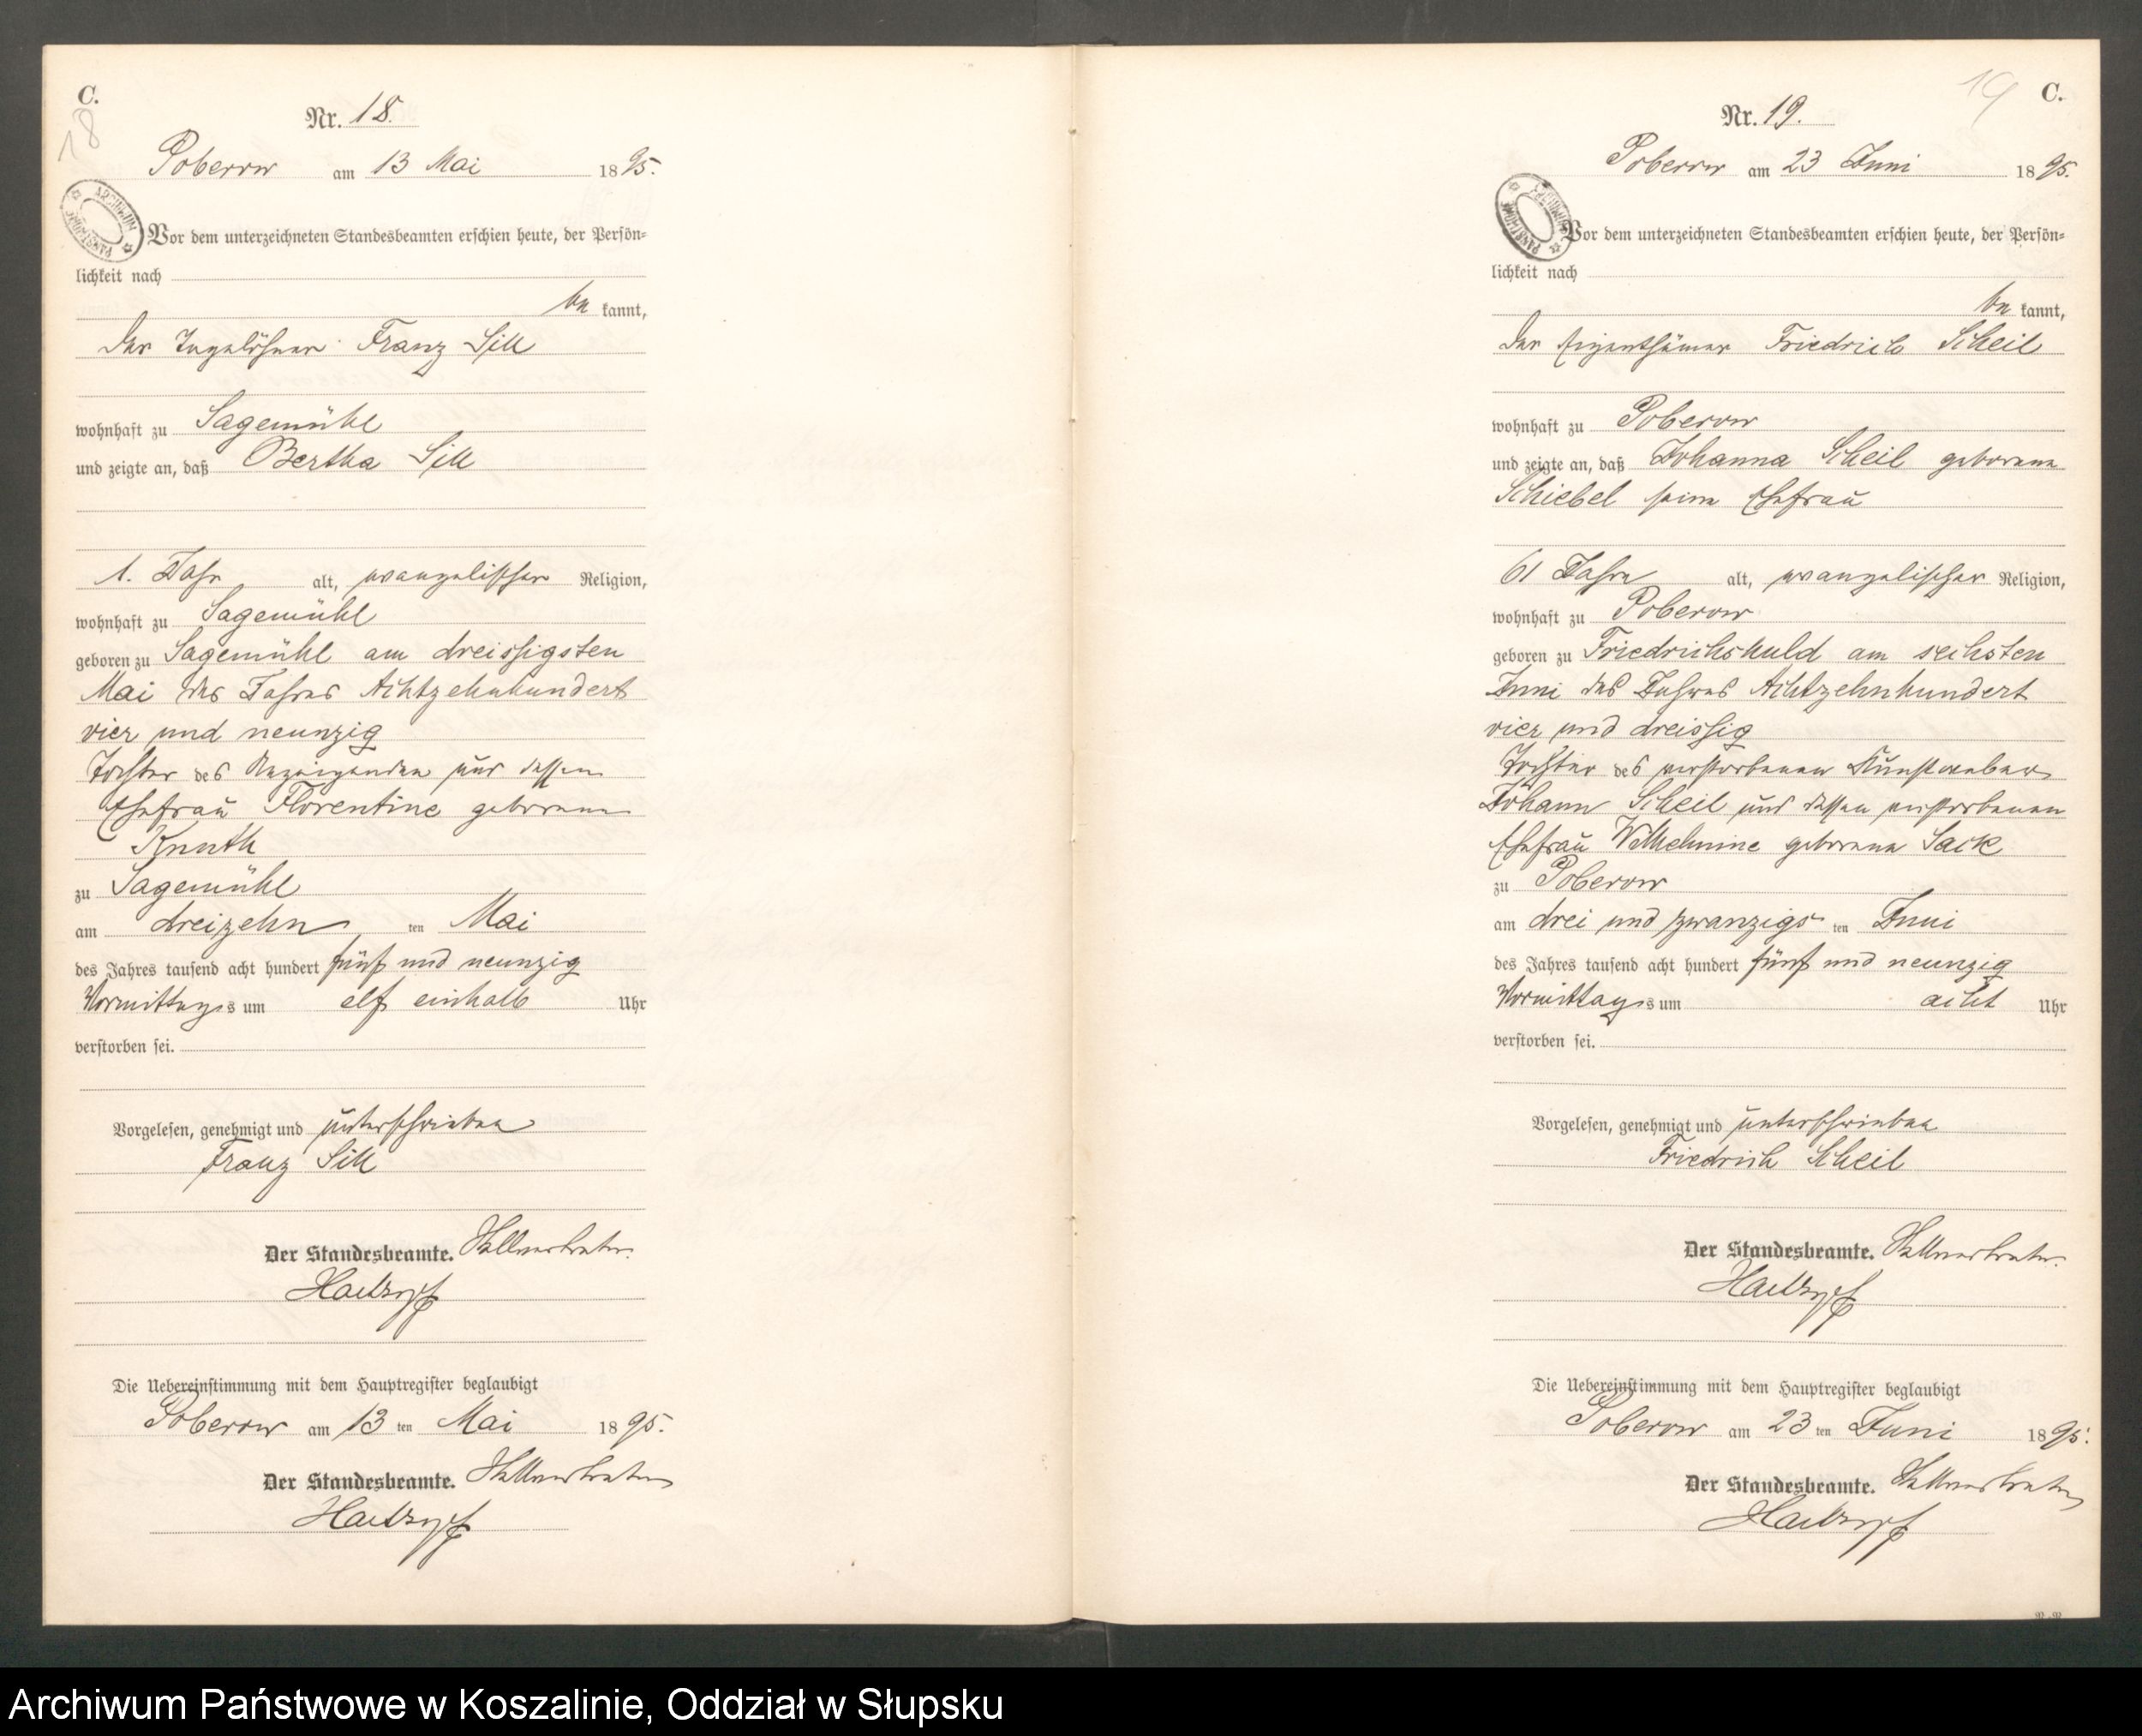 C.
18
Nr. 18.
Poberow am 13 Mai 1895.
ARCHIWUM PAŃSTWOWE
Vor dem unterzeichneten Standesbeamten erschien heute, der Persön-
lichkeit nach
be kannt,
der Tagelöhner Franz Sill
wohnhaft zu Sagemühl
und zeigte an, daß Bertha Sill
1. Jahr alt, evangelischer Religion,
wohnhaft zu Sagemühl
geboren zu Sagemühl am dreissigsten
Mai des Jahres Achtzehnhundert
vier und neunzig
Tochter des Anzeigenden und dessen
Ehefrau Florentine geborene
Knuth
zu Sagemühl
am dreizehn ten Mai
des Jahres tausend acht hundert fünf und neunzig
Vormittags um elf einhalb Uhr
verstorben sei.
Vorgelesen, genehmigt und unterschrieben
Franz Sill
Der Standesbeamte. Stellvertreter.
Die Uebereinstimmung mit dem Hauptregister beglaubigt
Poberow am 13 ten Mai 1895.
Der Standesbeamte. Stellvertreter
19
C.
Nr. 19.
Poberow am 23 Juni 1895.
ARCHIWUM PAŃSTWOWE
Vor dem unterzeichneten Standesbeamten erschien heute, der Persön-
lichkeit nach
be kannt,
der Eigenthümer Friedrich Scheil
wohnhaft zu Poberow
und zeigte an, daß Johanna Scheil geborene
Schiebel seine Ehefrau
61 Jahre alt, evangelischer Religion,
wohnhaft zu Poberow
geboren zu Friedrichshuld am sechsten
Juni des Jahres Achtzehnhundert
vier und dreissig
Tochter des verstorbenen Kunstweber
Johann Scheil und dessen verstorbenen
Ehefrau Wilhelmine geborene Sack
zu Poberow
am drei und zwanzigs ten Juni
des Jahres tausend acht hundert fünf und neunzig
Vormittags um acht Uhr
verstorben sei.
Vorgelesen, genehmigt und unterschrieben
Friedrich Scheil
Der Standesbeamte. Stellvertreter.
Die Uebereinstimmung mit dem Hauptregister beglaubigt
Poberow am 23 ten Juni 1895.
Der Standesbeamte. Stellvertreter
Archiwum Państwowe w Koszalinie, Oddział w Słupsku